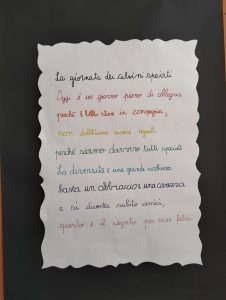 La giornata dei calzini spaiati
Oggi è un giorno pieno di allegria
perché è bello stare in compagnia,
non dobbiamo essere uguali
perché siamo davvero tutti speciali
La diversità è una grande ricchezza
basta un abbraccio una carezza
e si diventa subito amici,
questo è il segreto per essere felici